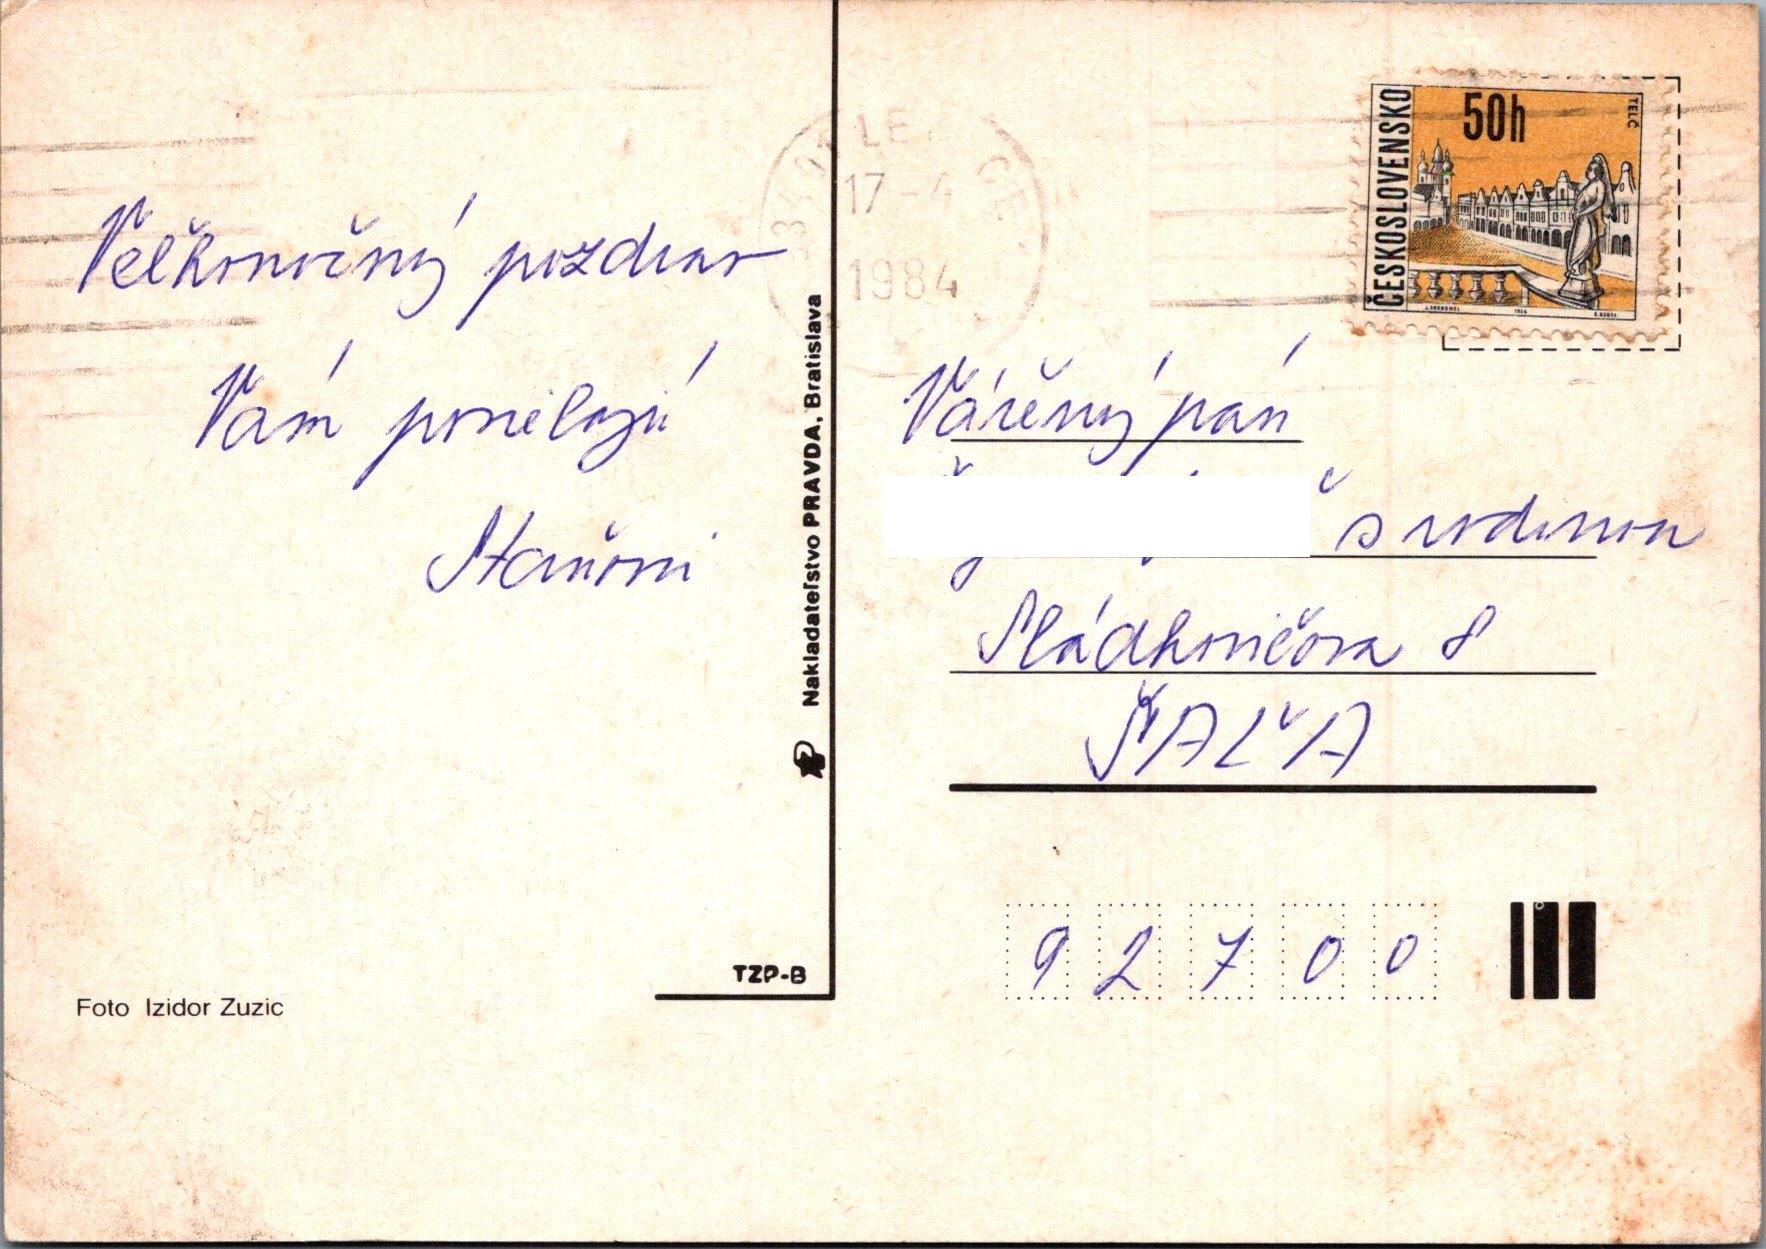 Veľkonočný pozdrav
Vám posielajú
Staňovi
Foto Izidor Zuzic
TZP-B
Nakladateľstvo PRAVDA, Bratislava
17-4
1984
ČESKOSLOVENSKO
50h
TELČ
Vážený pán
s rodinou
Sládkovičova 8
ŠAĽA
9 2 7 0 0